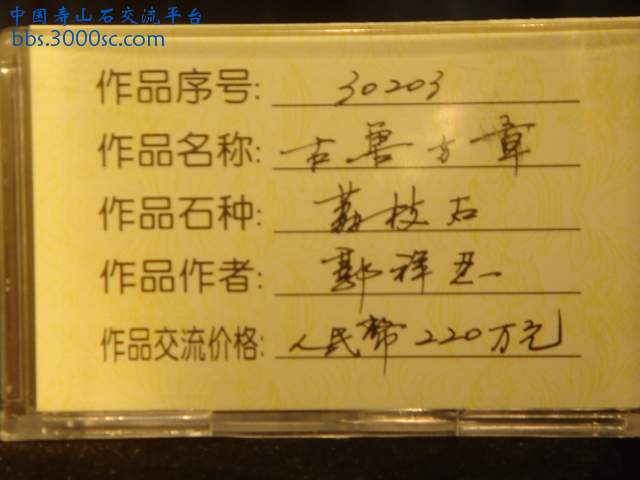 中国寿山石交流平台
bbs.3000sc.com
作品序号: 30203
作品名称: 古兽方章
作品石种: 荔枝石
作品作者: 郭祥忍
作品交流价格: 人民币220万元